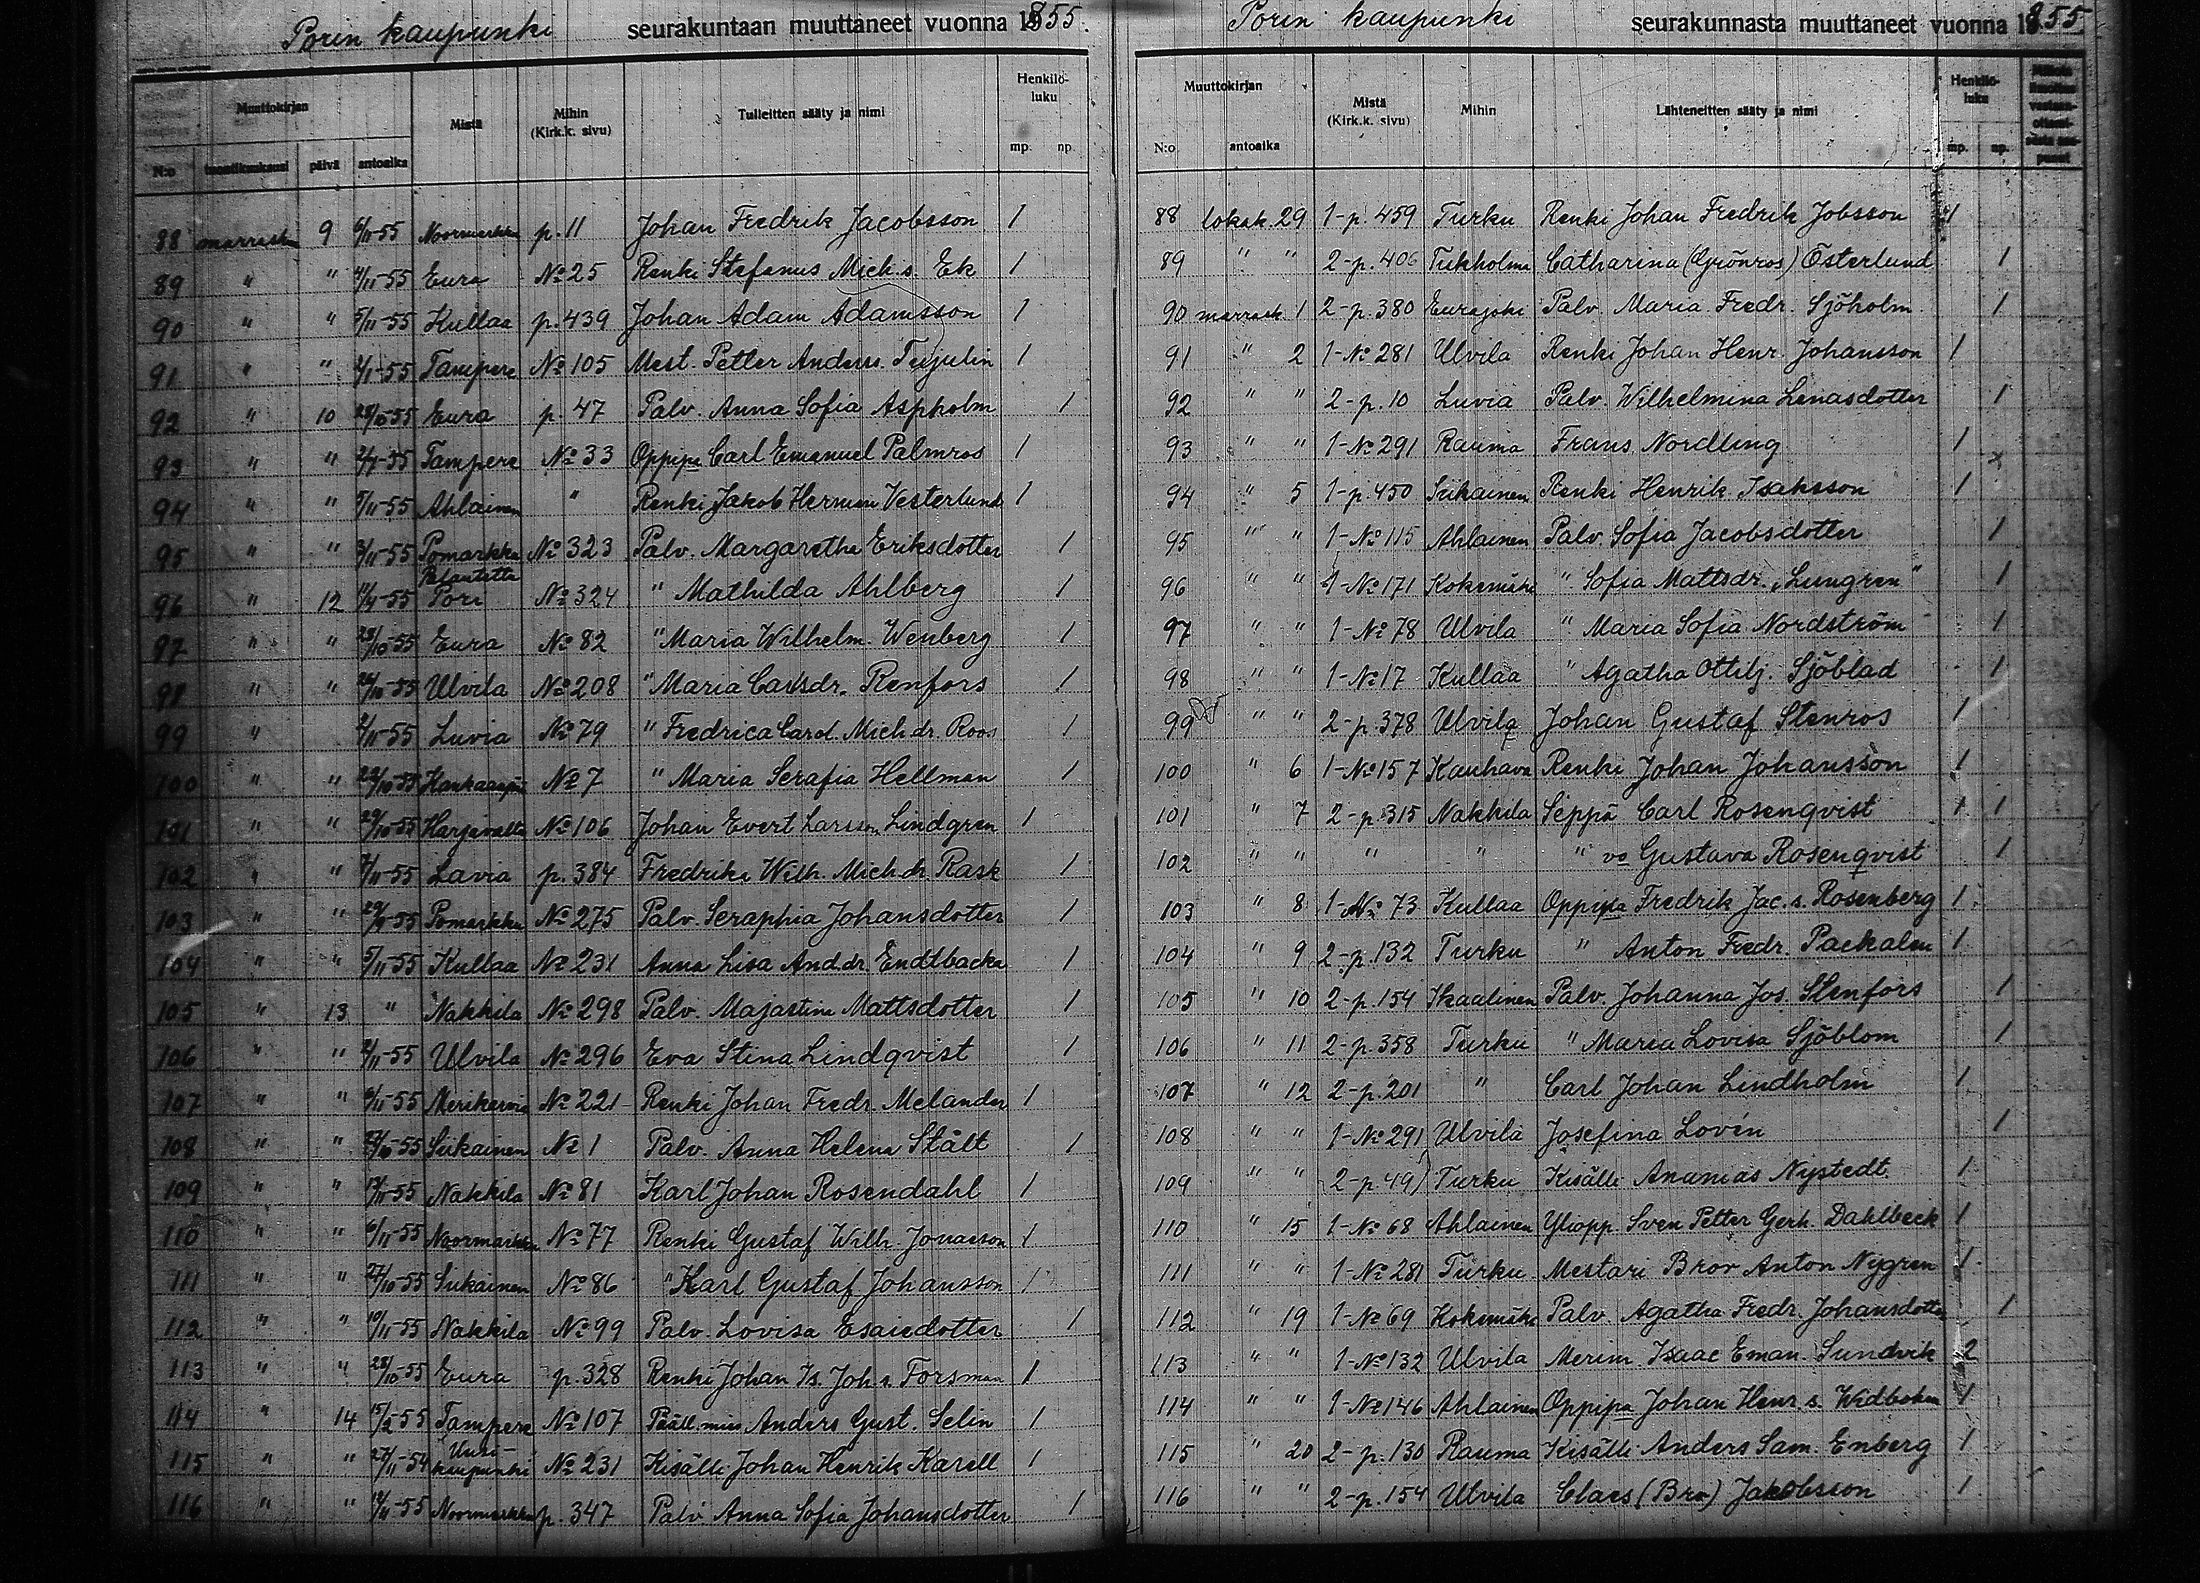 Porin kaupunki seurakuntaan muuttaneet vuonna 1855.
Muuttokirjan Mistä Mihin (Kirk.k. sivu) Tulleitten sääty ja nimi Henkilö-luku
N:o päivä antoaika mp. np.
88 marrask. 9 6/11-55 Noormarkku p. 11 Johan Fredrik Jacobsson 1
89 " " 4/11-55 Eura No 25 Renki Stefanus Mich.s. Ek 1
90 " " 5/11-55 Kullaa p. 439 Johan Adam Adamsson 1
91 " " Tampere No 105 Mest. Petter Anders. 1
92 " 10 28/10-55 Eura p. 47 Palv. Anna Sofia Aspholm 1
93 " " Tampere No 33 Oppipa Carl Emanuel Palmros 1
94 " " 5/11-55 Ahlainen " Renki Jakob Herman Vesterlund 1
95 " " 3/11-55 Pomarkku No 323 Palv. Margaretha Eriksdotter 1
96 " 12 Palautettu Pori No 324 " Mathilda Ahlberg 1
97 " " 28/10-55 Eura No 82 " Maria Wilhelm. Wenberg 1
98 " " Ulvila No 208 " Maria Carlsdr. Renfors 1
99 " 2/11-55 Luvia No 79 " Fredrica Carol. Mich.dr. Roos 1
100 " " 22/10-55 Kankaanpää No 7 " Maria Serafia Hellman 1
101 " " 29/10-55 Harjavalta No 106 Johan Evert Larsson Lindgren 1
102 " " 7/11-55 Lavia p. 384 Fredrika Wilh. Mich.dr. Rask 1
103 " " Pomarkku No 275 Palv. Seraphia Johansdotter 1
104 " " 5/11-55 Kullaa No 231 Anna Lisa And.dr. Endtbacka 1
105 " 13 " Nakkila No 298 Palv. Majastina Mattsdotter 1
106 " " 2/11-55 Ulvila No 296 Eva Stina Lindqvist 1
107 " " Merikarvia No 221 Renki Johan Fredr. Melander 1
108 " " Siikainen No 1 Palv. Anna Helena Stålt 1
109 " " Nakkila No 81 Karl Johan Rosendahl 1
110 " " 6/11-55 Noormarkku No 77 Renki Gustaf Wilh. Jonasson 1
111 " " 27/10-55 Siikainen No 86 " Karl Gustaf Johansson 1
112 " " 10/11-55 Nakkila No 99 Palv. Lovisa Esaiedotter 1
113 " " 28/10-55 Eura p. 328 Renki Johan Is. Joh.s. Forsman 1
114 " 14 15/2-55 Tampere No 107 Anders Gust. Selin 1
115 " " 27/11-54 Uusi-kaupunki No 231 Kisälli Johan Henrik Karell 1
116 " " Noormarkku p. 347 Palv. Anna Sofia Johansdotter 1
Porin kaupunki seurakunnasta muuttaneet vuonna 1855
Muuttokirjan Mistä (Kirk.k. sivu) Mihin Lähteneitten sääty ja nimi Henkilö-luku
N:o antoaika mp. np.
88 lokak. 29 1-p. 459 Turku Renki Johan Fredrik Jobsson 1
89 " " 2-p. 406 Tukholma Catharina (Grönros) Österlund 1
90 marrask. 1 2-p. 380 Eurajoki Palv. Maria Fredr. Sjöholm 1
91 " 2 1-No 281 Ulvila Renki Johan Henr. Johansson 1
92 " " 2-p. 10 Luvia Palv. Wilhelmina Lenasdotter 1
93 " " 1-No 291 Rauma Frans Nordling 1
94 " 5 1-p. 450 Siikainen Renki Henrik Isaksson 1
95 " " 1-No 115 Ahlainen Palv. Sofia Jacobsdotter 1
96 " " 1-No 171 Kokemäki " Sofia Mattsdr. "Lungren" 1
97 " " 1-No 78 Ulvila " Maria Sofia Nordström 1
98 " " 1-No 17 Kullaa " Agatha Ottilj. Sjöblad 1
99 " " 2-p. 378 Ulvila Johan Gustaf Stenros 1
100 " 6 1-No 157 Kauhava Renki Johan Johansson 1
101 " 7 2-p. 315 Nakkila Seppä Carl Rosenqvist 1 1
102 " " " " " vo Gustava Rosenqvist 1
103 " 8 1-No 73 Kullaa Oppipa Fredrik Jac.s. Rosenberg 1
104 " 9 2-p. 132 Turku " Anton Fredr. Packalen 1
105 " 10 2-p. 154 Ikaalinen Palv. Johanna Jos. Stenfors 1
106 " 11 2-p. 358 Turku " Maria Lovisa Sjöblom 1
107 " 12 2-p. 201 " Carl Johan Lindholm 1
108 " " 1-No 291 Ulvila Josefina Lovén 1
109 " " 2-p. 49) Turku Kisälli Ananias Nystedt 1
110 " 15 1-No 68 Ahlainen Yliopp. Sven Petter Gerh. Dahlbeck 1
111 " " 1-No 281 Turku Mestari Bror Anton Nygren 1
112 " 19 1-No 69 Kokemäki Palv. Agatha Fredr. Johansdotter 1
113 " " 1-No 132 Ulvila Merim. Isaac Eman. Sundvik 2
114 " " 1-No 146 Ahlainen Oppipa Johan Henr.s. 1
115 " 20 2-p. 130 Rauma Kisälli Anders Sam. Enberg 1
116 " " 2-p. 154 Ulvila Claes (Bro) Jakobsson 1